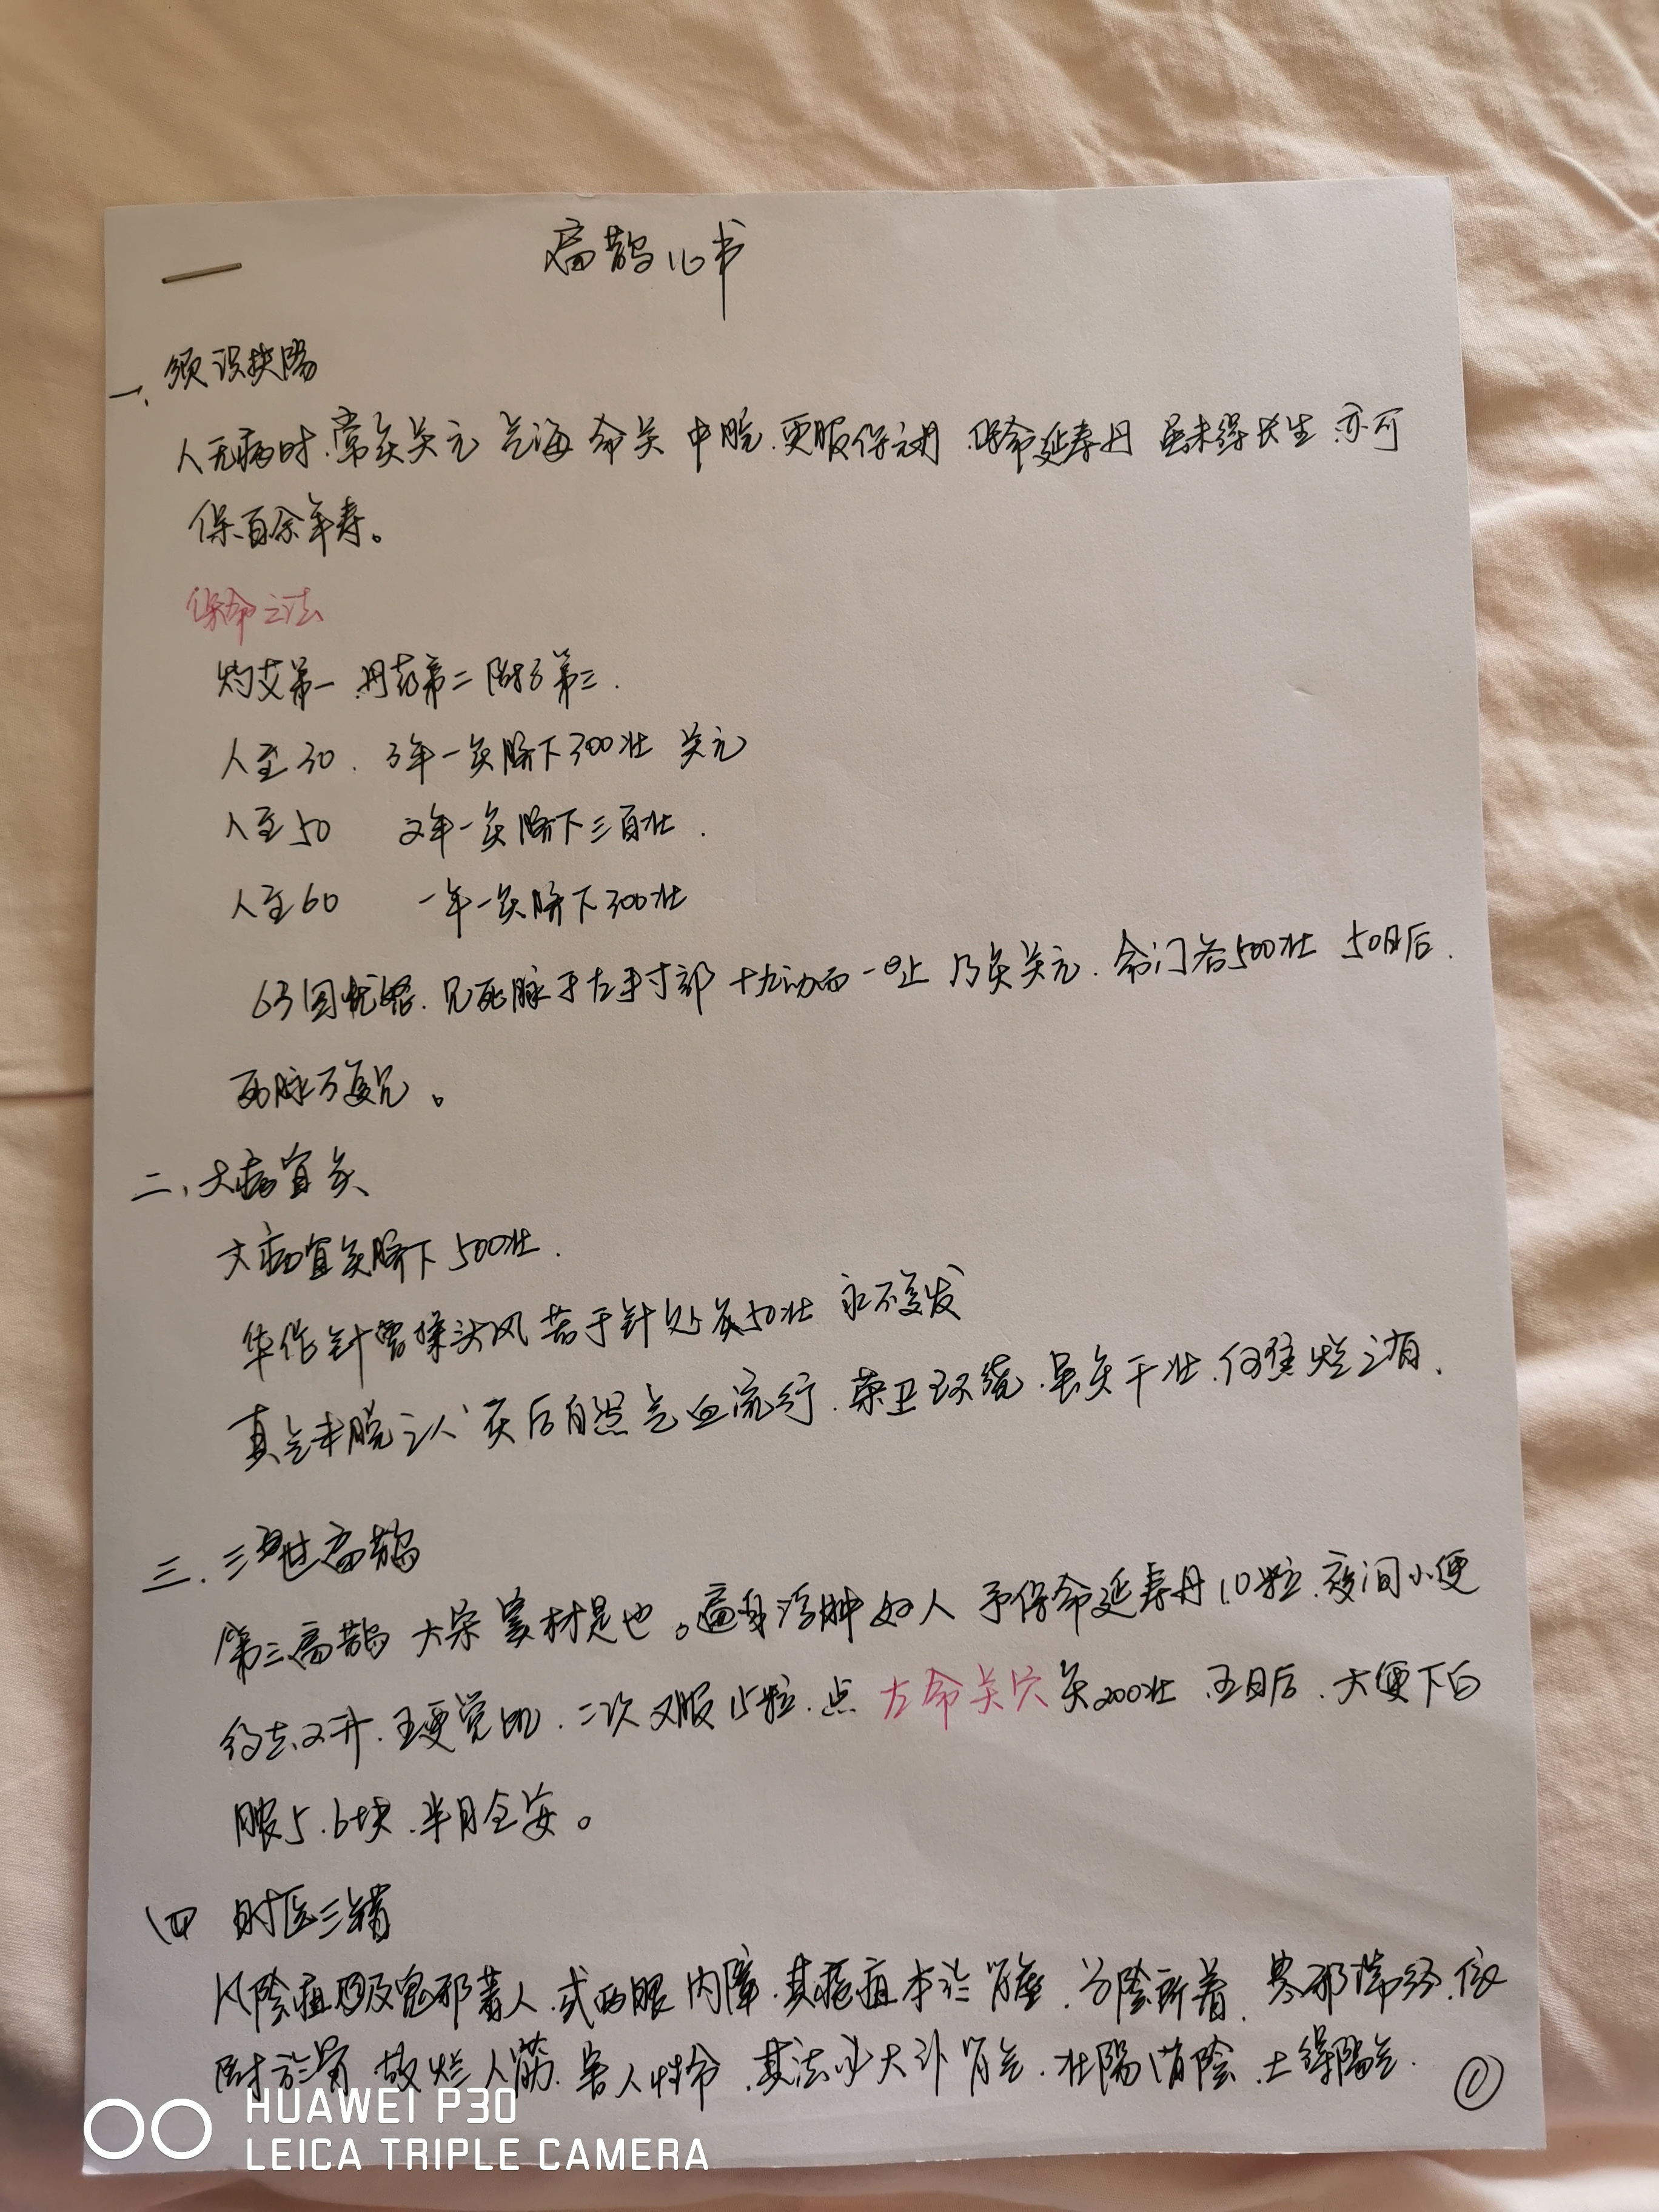 扁鹊心书
一、须识扶陽
人无病时.常灸关元 气海 命关 中脘.更服保元丹 保命延寿丹 虽未得长生 亦可
保百余年寿。
保命之法
灼艾第一 丹药第二 附子第三.
人至30. 3年一灸脐下300壮 关元
人至50 2年一灸脐下三百壮.
人至60 一年一灸脐下300壮
63因忧怒.见死脉于左手寸部 十九动而一止 乃灸关元.命门各500壮 50日后.
死脉不复见。
二、大病宜灸
大病宜灸脐下500壮.
华佗针曹操头风 若于针处灸50壮 永不复发
真气未脱之人 灸后自然气血流行.荣卫环绕.虽灸千壮.何焦烂之有.
三.三世扁鹊
第三扁鹊 大宋窦材是也。遍身浮肿妇人 予保命延寿丹10粒.夜间小便
约去2升.五更觉饥.二次又服15粒.点 左命关穴 灸200壮 五日后.大便下白
脓5.6块.半月全安。
四 时医三错
以陰疽 及鬼邪著人.或两眼内障.其 疽本于肾虚.为陰所着.寒邪滞经.依
附于骨 故烂人筋.害人性命.其法必大补肾气.壮陽消陰.土得陽气.
①
HUAWEI P30
LEICA TRIPLE CAMERA